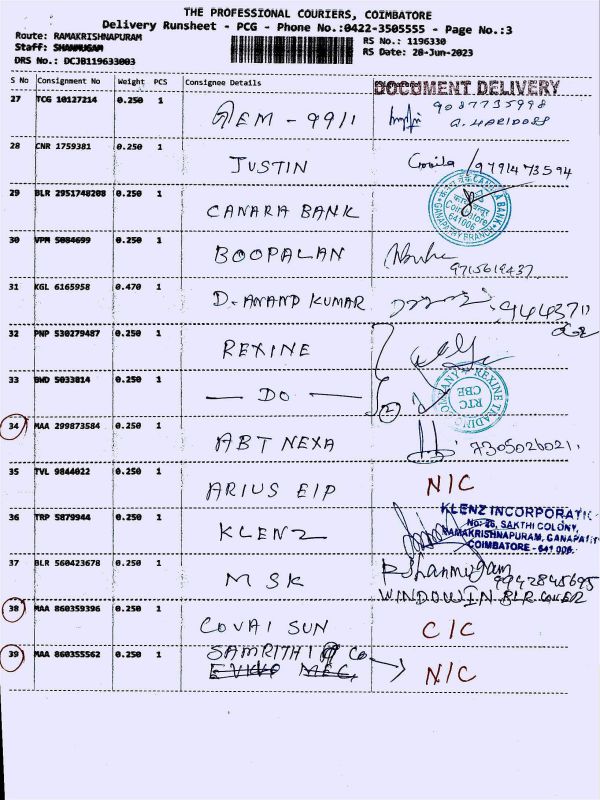 THE PROFESSIONAL COURIERS, COIMBATORE
Delivery Runsheet - PCG - Phone No.:0422-3505555 - Page No.:3
Route: RAMAKRISHNAPURAM
RS No.: 1196330
Staff: SHANMUGAM
RS Date: 28-Jun-2023
DRS No.: DCJB119633003
S No Consignment No Weight PCS Consignee Details
DOCUMENT DELIVERY
27 TCG 10127214 0.250 1
GEM - 9911
9087735998
28 CNR 1759381 0.250 1
JUSTIN
9791473594
29 BLR 2951748208 0.250 1
CANARA BANK
CANARA BANK
Coimbatore
641006
GANAPATHY BRANCH
30 VPM 5084699 0.250 1
BOOPALAN
9715619437
31 KGL 6165958 0.470 1
D. ANAND KUMAR
32 PNP 530279487 0.250 1
REXINE
33 BWD 5033814 0.250 1
— DO —
2
REXINE TRADING COMPANY
RTC
CBE
34 MAA 299873584 0.250 1
ABT NEXA
7305026021
35 TVL 9844022 0.250 1
ARIUS EIP
N/C
36 TRP 5879944 0.250 1
KLENZ
KLENZ INCORPORATI
No: 86, SAKTHI COLONY,
RAMAKRISHNAPURAM, GANAPATHY
COIMBATORE - 641 006.
37 BLR 560423678 0.250 1
MSK
R Shanmugam
9942845695
WINDOW IN BLR COVER
38 MAA 860359396 0.250 1
COVAI SUN
C/C
39 MAA 860355562 0.250 1
SAMRITHI & CO
N/C